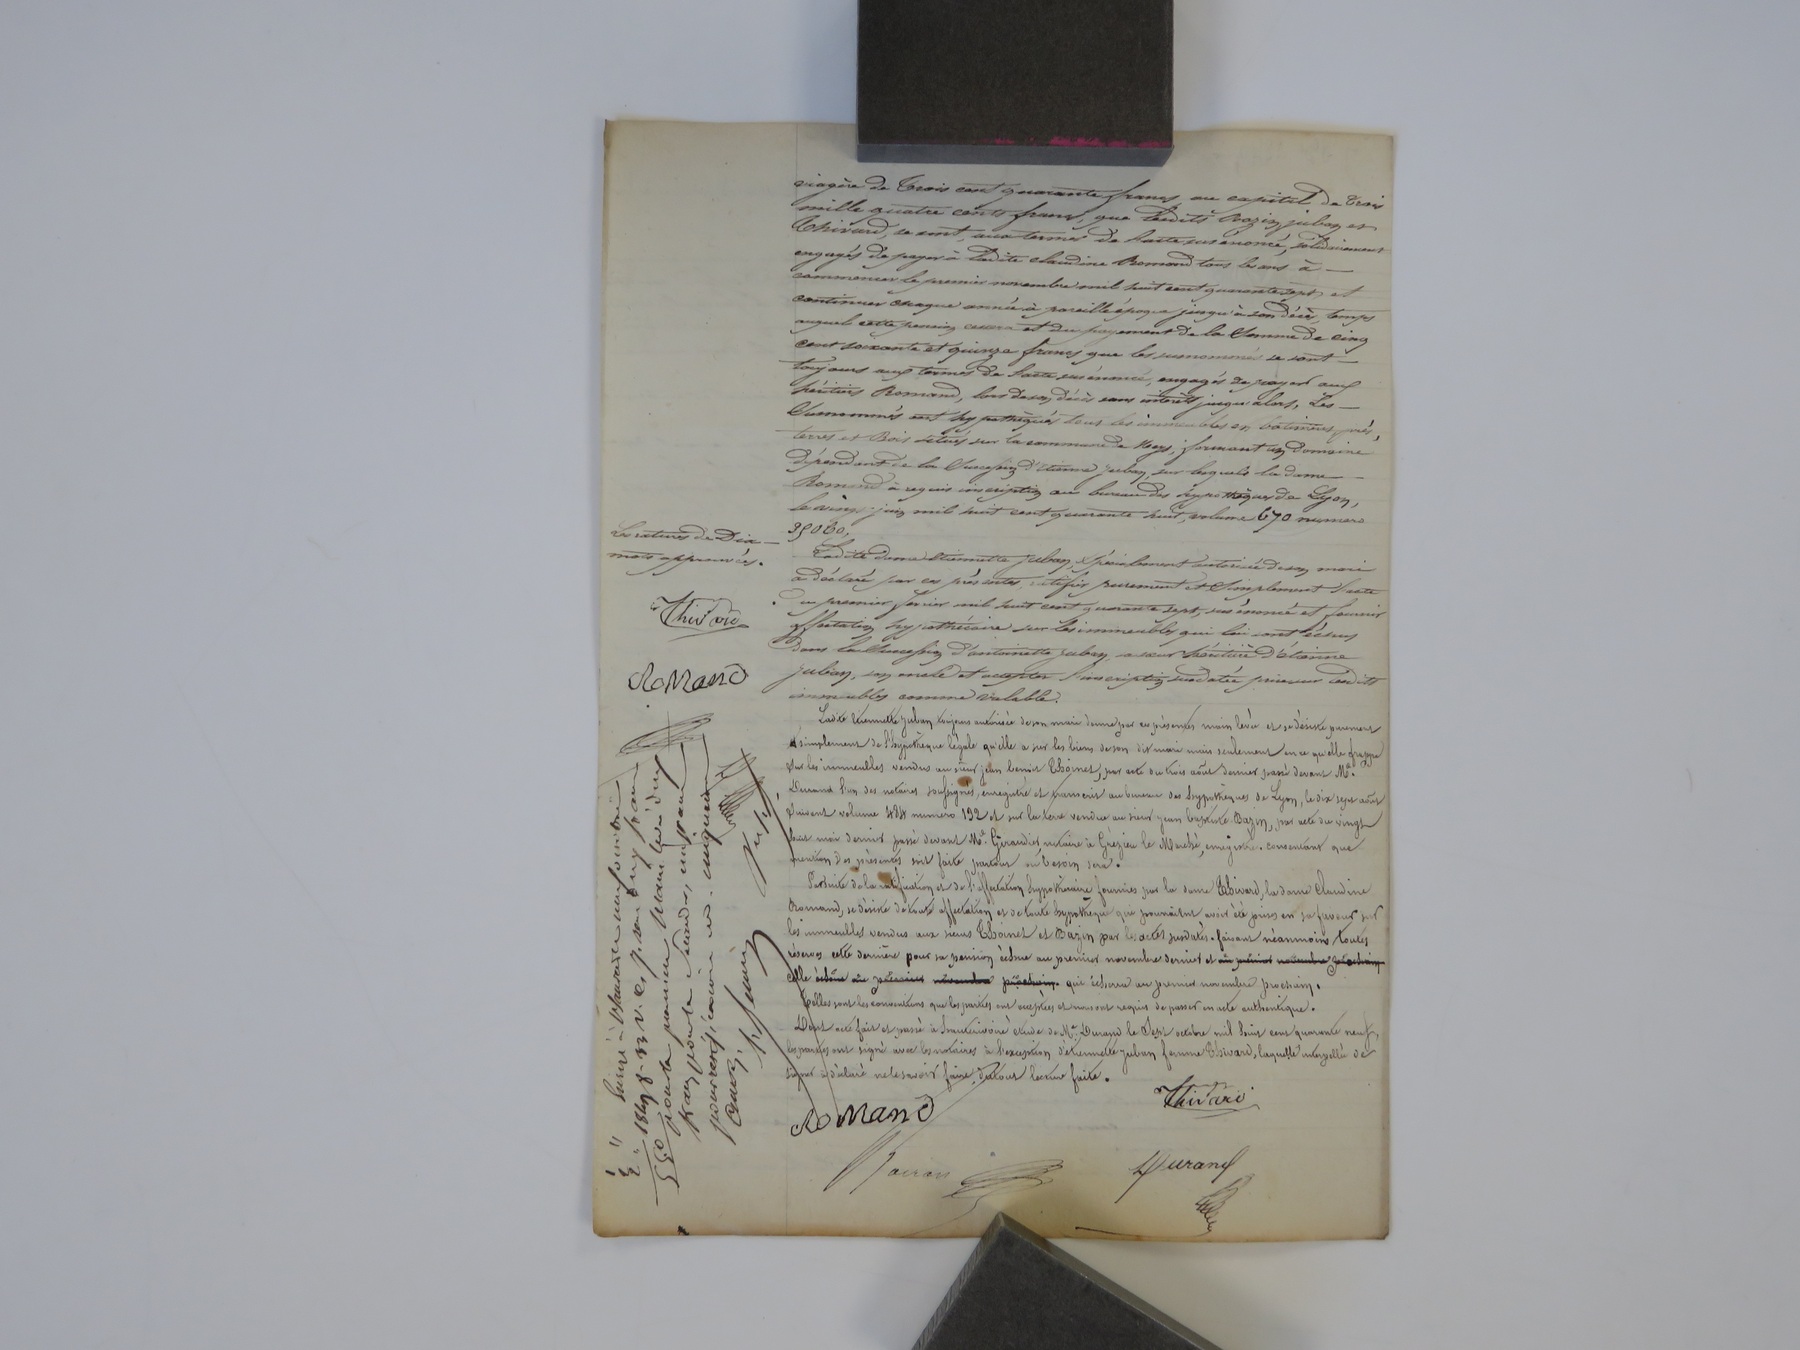 viagère de Trois cent quarante francs, au capital de Trois
mille quatre cents francs, que lesdits Bazin, juban et
Thivard, se sont, aux termes de l'acte susénoncé, solidairement
engagés de payer à ladite claudine Romand tous les ans à —
commencer le premier novembre mil huit cent quarante sept, et
continuer chaque année à pareille époque jusqu'à son décès, temps
auquel cette pension cessera et du payement de la Somme de cinq
cent soixante et quinze francs que les susnommés se sont —
toujours aux termes de l'acte susénoncé, engagés de payer aux
héritiers Romand, lors de son décès sans intérêts jusqu'alors. Les —
Susnommés ont hypothéqués tous les immeubles en bâtiments, prés,
terres et Bois situés sur la commune de Meys, formant un domaine
dépendant de la Succession d'étienne juban, sur lesquels la dame —
Romand à requis inscription au bureau des hypothèques de Lyon,
le vingt juin mil huit cent quarante huit, volume 670 numero
35060,
Ladite dame étiennette juban, spécialement autorisée de son mari
a déclaré par ces présentes, ratifier purement et Simplement l'acte
du premier février mil huit cent quarante sept, susénoncé et fournir
affectation hypothécaire sur les immeubles qui lui sont échus
dans la Succession d'antoinette juban, sa sœur héritière d'étienne
juban, son oncle et accepter l'inscription susdatée prise sur lesdits
immeubles comme valable.
Ladite étiennette juban toujours autorisée de son mari donne par ces présentes main levée et se désiste purement
et simplement de l'hypothèque légale qu'elle a sur les biens de son dit mari mais seulement en ce qu'elle frappe
sur les immeubles vendus au sieur jean benoit Thoinet, par acte du trois août dernier passé devant Me.
Durand l'un des notaires soussignés, enregistré et transcrit au bureau des hypothèques de Lyon, le dix sept août
suivant volume 484 numero 192 et sur la terre vendue au sieur jean baptiste Bazin, par acte du vingt
huit mai dernier passé devant Me. Giraudier, notaire à Grézieu le Marché, enregistré. consentant que
mention des présentes soit faite partout où besoin sera.
Par suite de la ratification et de l'affectation hypothécaire fournies par la dame Thivard, la dame Claudine
Romand, se désiste de toute affectation et de toute hypothèque qui pourraient avoir été prises en sa faveur sur
les immeubles vendus aux sieurs Thoinet et Bazin par les actes susdatés. faisant néanmoins toutes
réserves cette dernière pour sa pension échue au premier novembre dernier et au premier novembre prochain
celle échue au premier novembre prochain. qui écherra au premier novembre prochain.
Telles sont les conventions que les parties ont acceptées et nous ont requis de passer en acte authentique.
Dont acte fait et passé à étude de Me. Durand le Sept octobre mil huit cent quarante neuf,
les parties ont signé avec les notaires à l'exception d'étiennette juban femme Thivard, laquelle interpellée de
signer a déclaré ne le savoir faire, de tout lecture faite.
Thivard
Romand
Durand
Les ratures de Dix —
mots approuvées.
Thivard
Romand